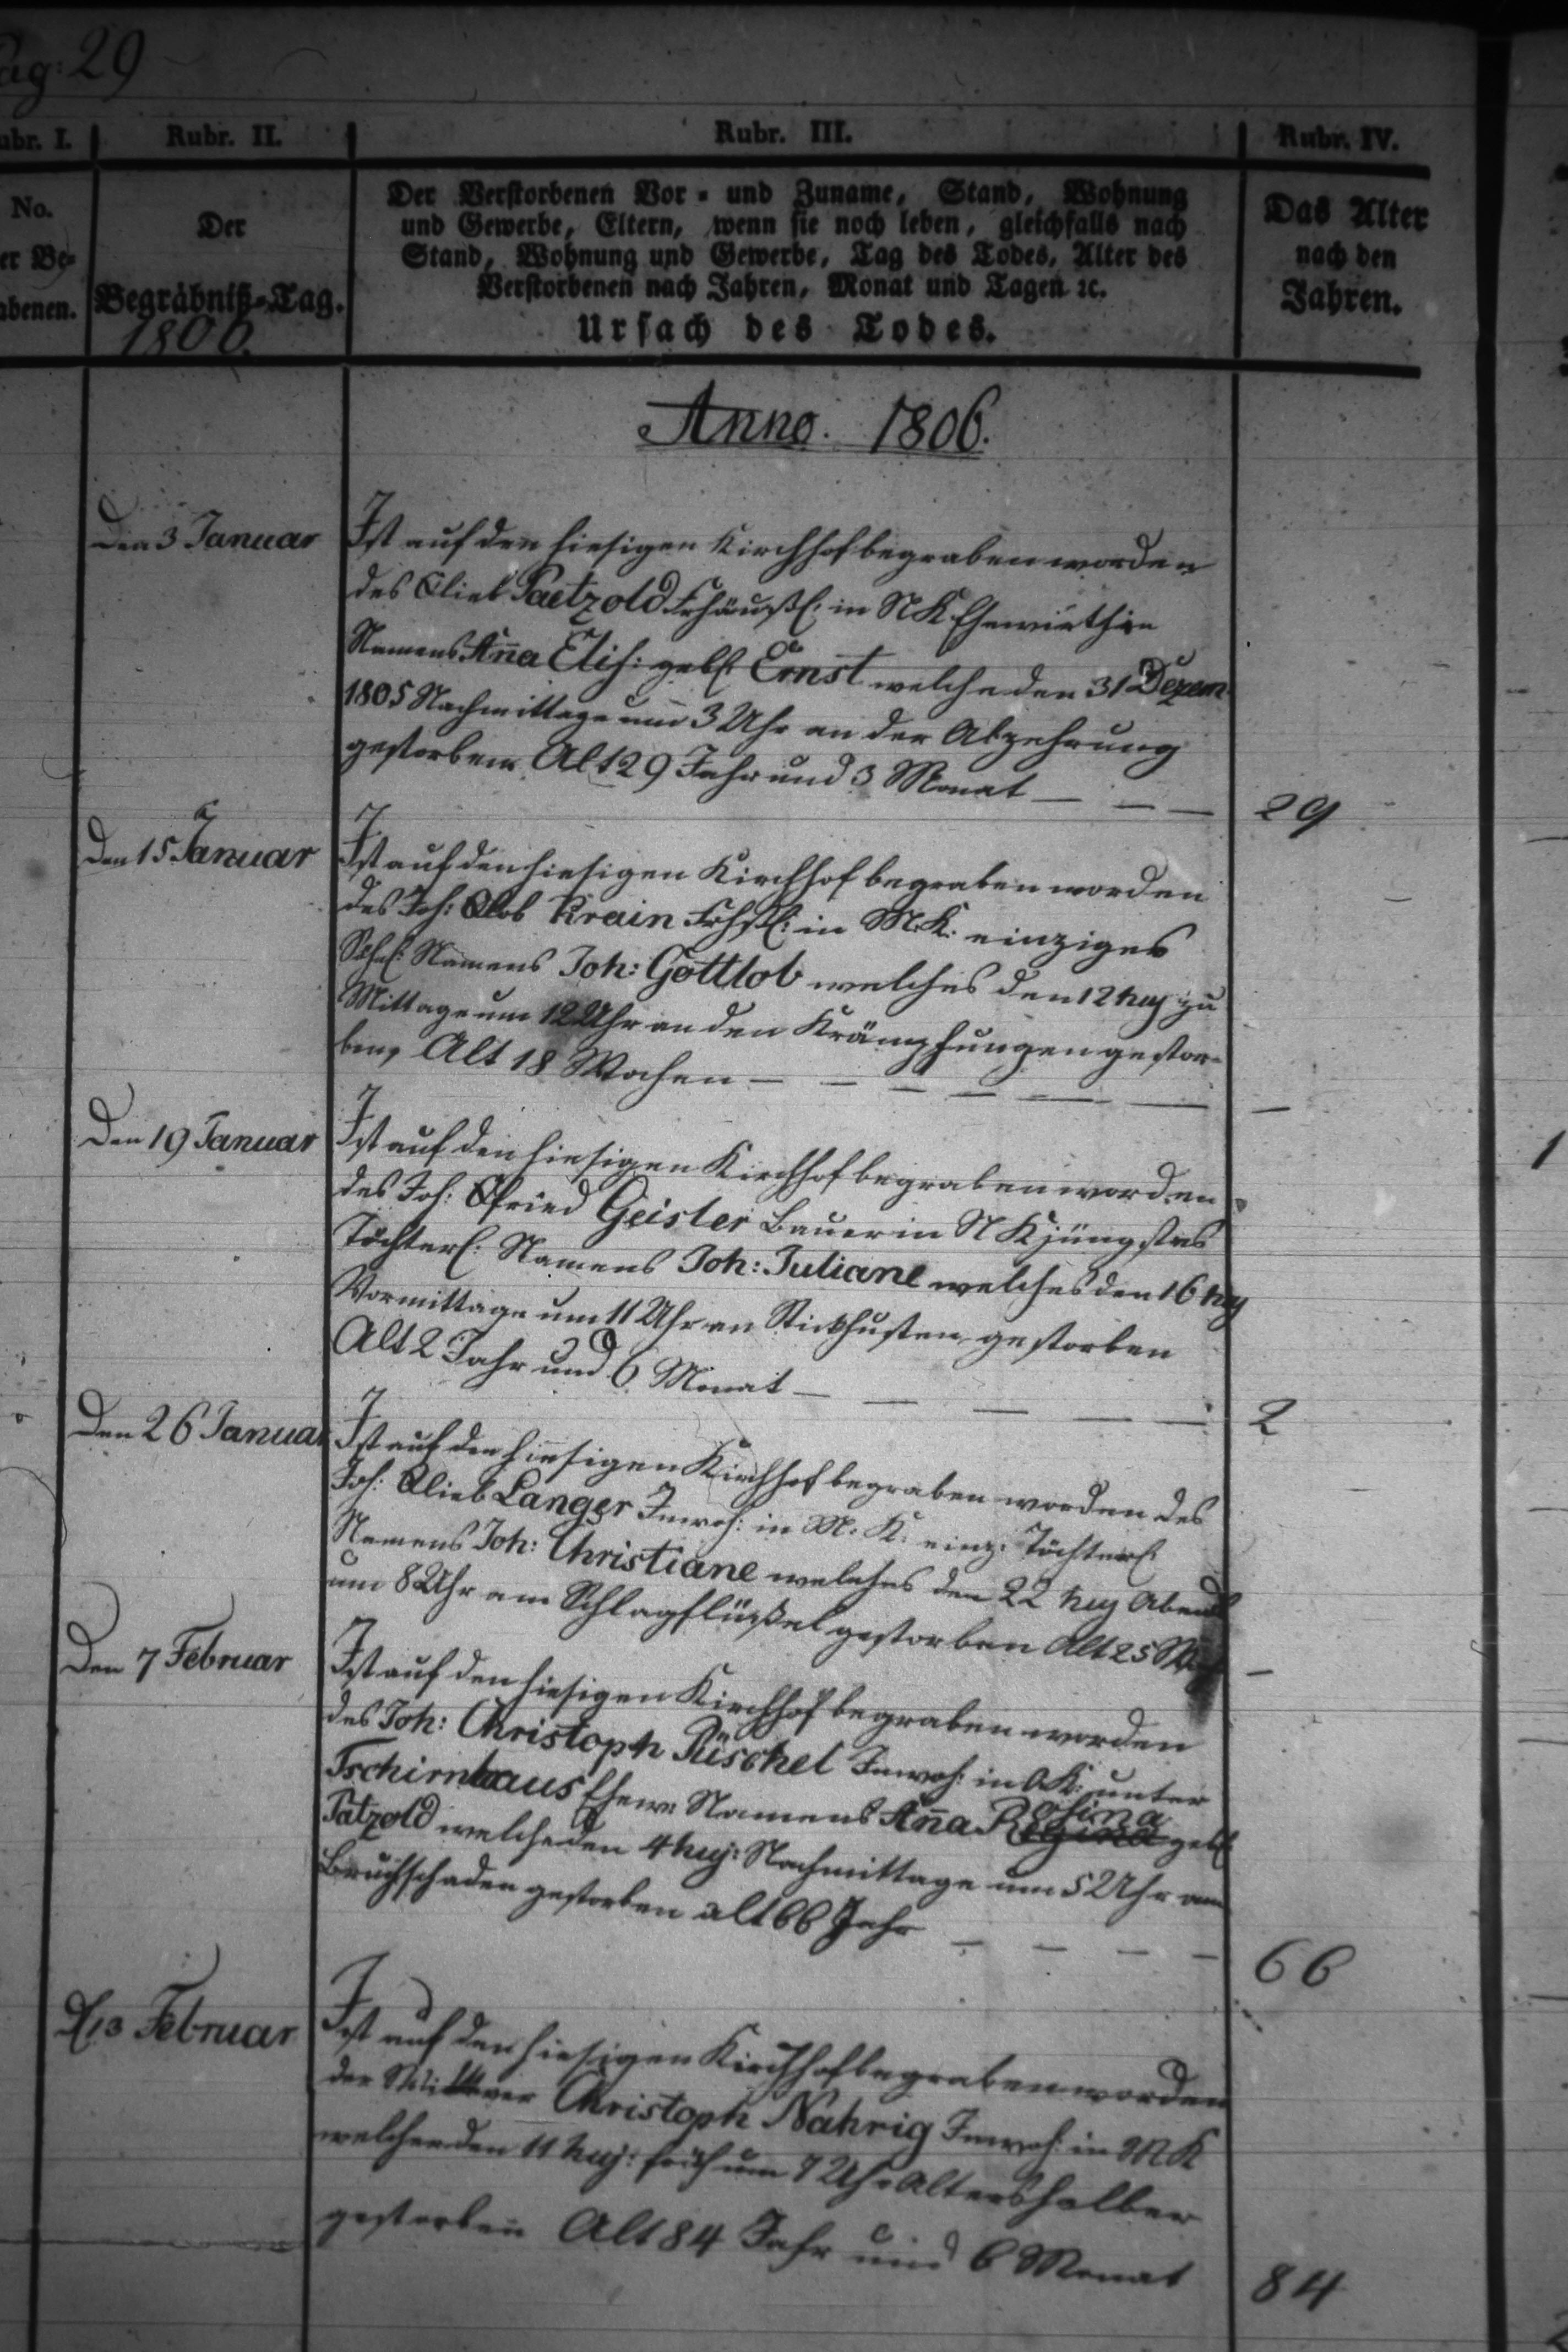 Pag: 29
Rubr. I.
Rubr. II.
Rubr. III.
Rubr. IV.
No.
er Be-
abenen.
Der
Begräbniß-Tag.
1806.
Der Verstorbenen Vor- und Zuname, Stand, Wohnung
und Gewerbe, Eltern, wenn sie noch leben, gleichfalls nach
Stand, Wohnung und Gewerbe, Tag des Todes, Alter des
Verstorbenen nach Jahren, Monat und Tagen ꝛc.
Ursach des Todes.
Das Alter
nach den
Jahren.
Anno. 1806.
Den 3 Januar
Ist auf den hiesigen Kirchhof begraben worden
des Glieb Paetzold Frhäußl: in NK Ehewirthin
Namens Ana Elis: geb: Ernst welche den 31 Dezem
1805 Nachmittage um 3 Uhr an der Abzehrung
gestorben. Alt 29 Jahr und 3 Monat — — —
29
Den 15 Januar
Ist auf den hiesigen Kirchhof begraben worden
des Joh: Glob Krain Frhßl: in M.K. einziges
Söhnl: Namens Joh: Gottlob welches den 12 huj zu
Mittage um 12 Uhr an den Krämpfungen gestor-
ben, Alt 18 Wochen — — — — — —
—
Den 19 Januar
Ist auf den hiesigen Kirchhof begraben worden
des Joh: Gfried Geisler Bauer in NK jüngstes
Töchterl: Namens Joh: Juliane welches den 16 huj
Vormittage um 11 Uhr an Stickhusten gestorben
Alt 2 Jahr und 6 Monat — — — — —
2
Den 26 Januar
Ist auf den hiesigen Kirchhof begraben worden des
Joh: Glieb Langer Inwoh: in M. K. einz: Töchterl:
Namens Joh: Christiane welches den 22 huj Abends
um 8 Uhr am Schlagflüßel gestorben Alt 25 Woch
—
Den 7 Februar
Ist auf den hiesigen Kirchhof begraben worden
des Joh: Christoph Püschel Inwoh: in OK: unter
Tschirnhaus Ehew: Namens Ana Regina Rosina geb:
Patzold welche den 4 huj: Nachmittage um 5 Uhr am
Bruchschaden gestorben alt 66 Jahr — — — —
66
D. 13 Februar
Ist auf den hiesigen Kirchhof begraben worden
der Wittwer Christoph Nahrig Inwoh: in MK
welcher den 11 huj: früh um 7 Uhr Altershalber
gestorben Alt 84 Jahr und 6 Monat
84